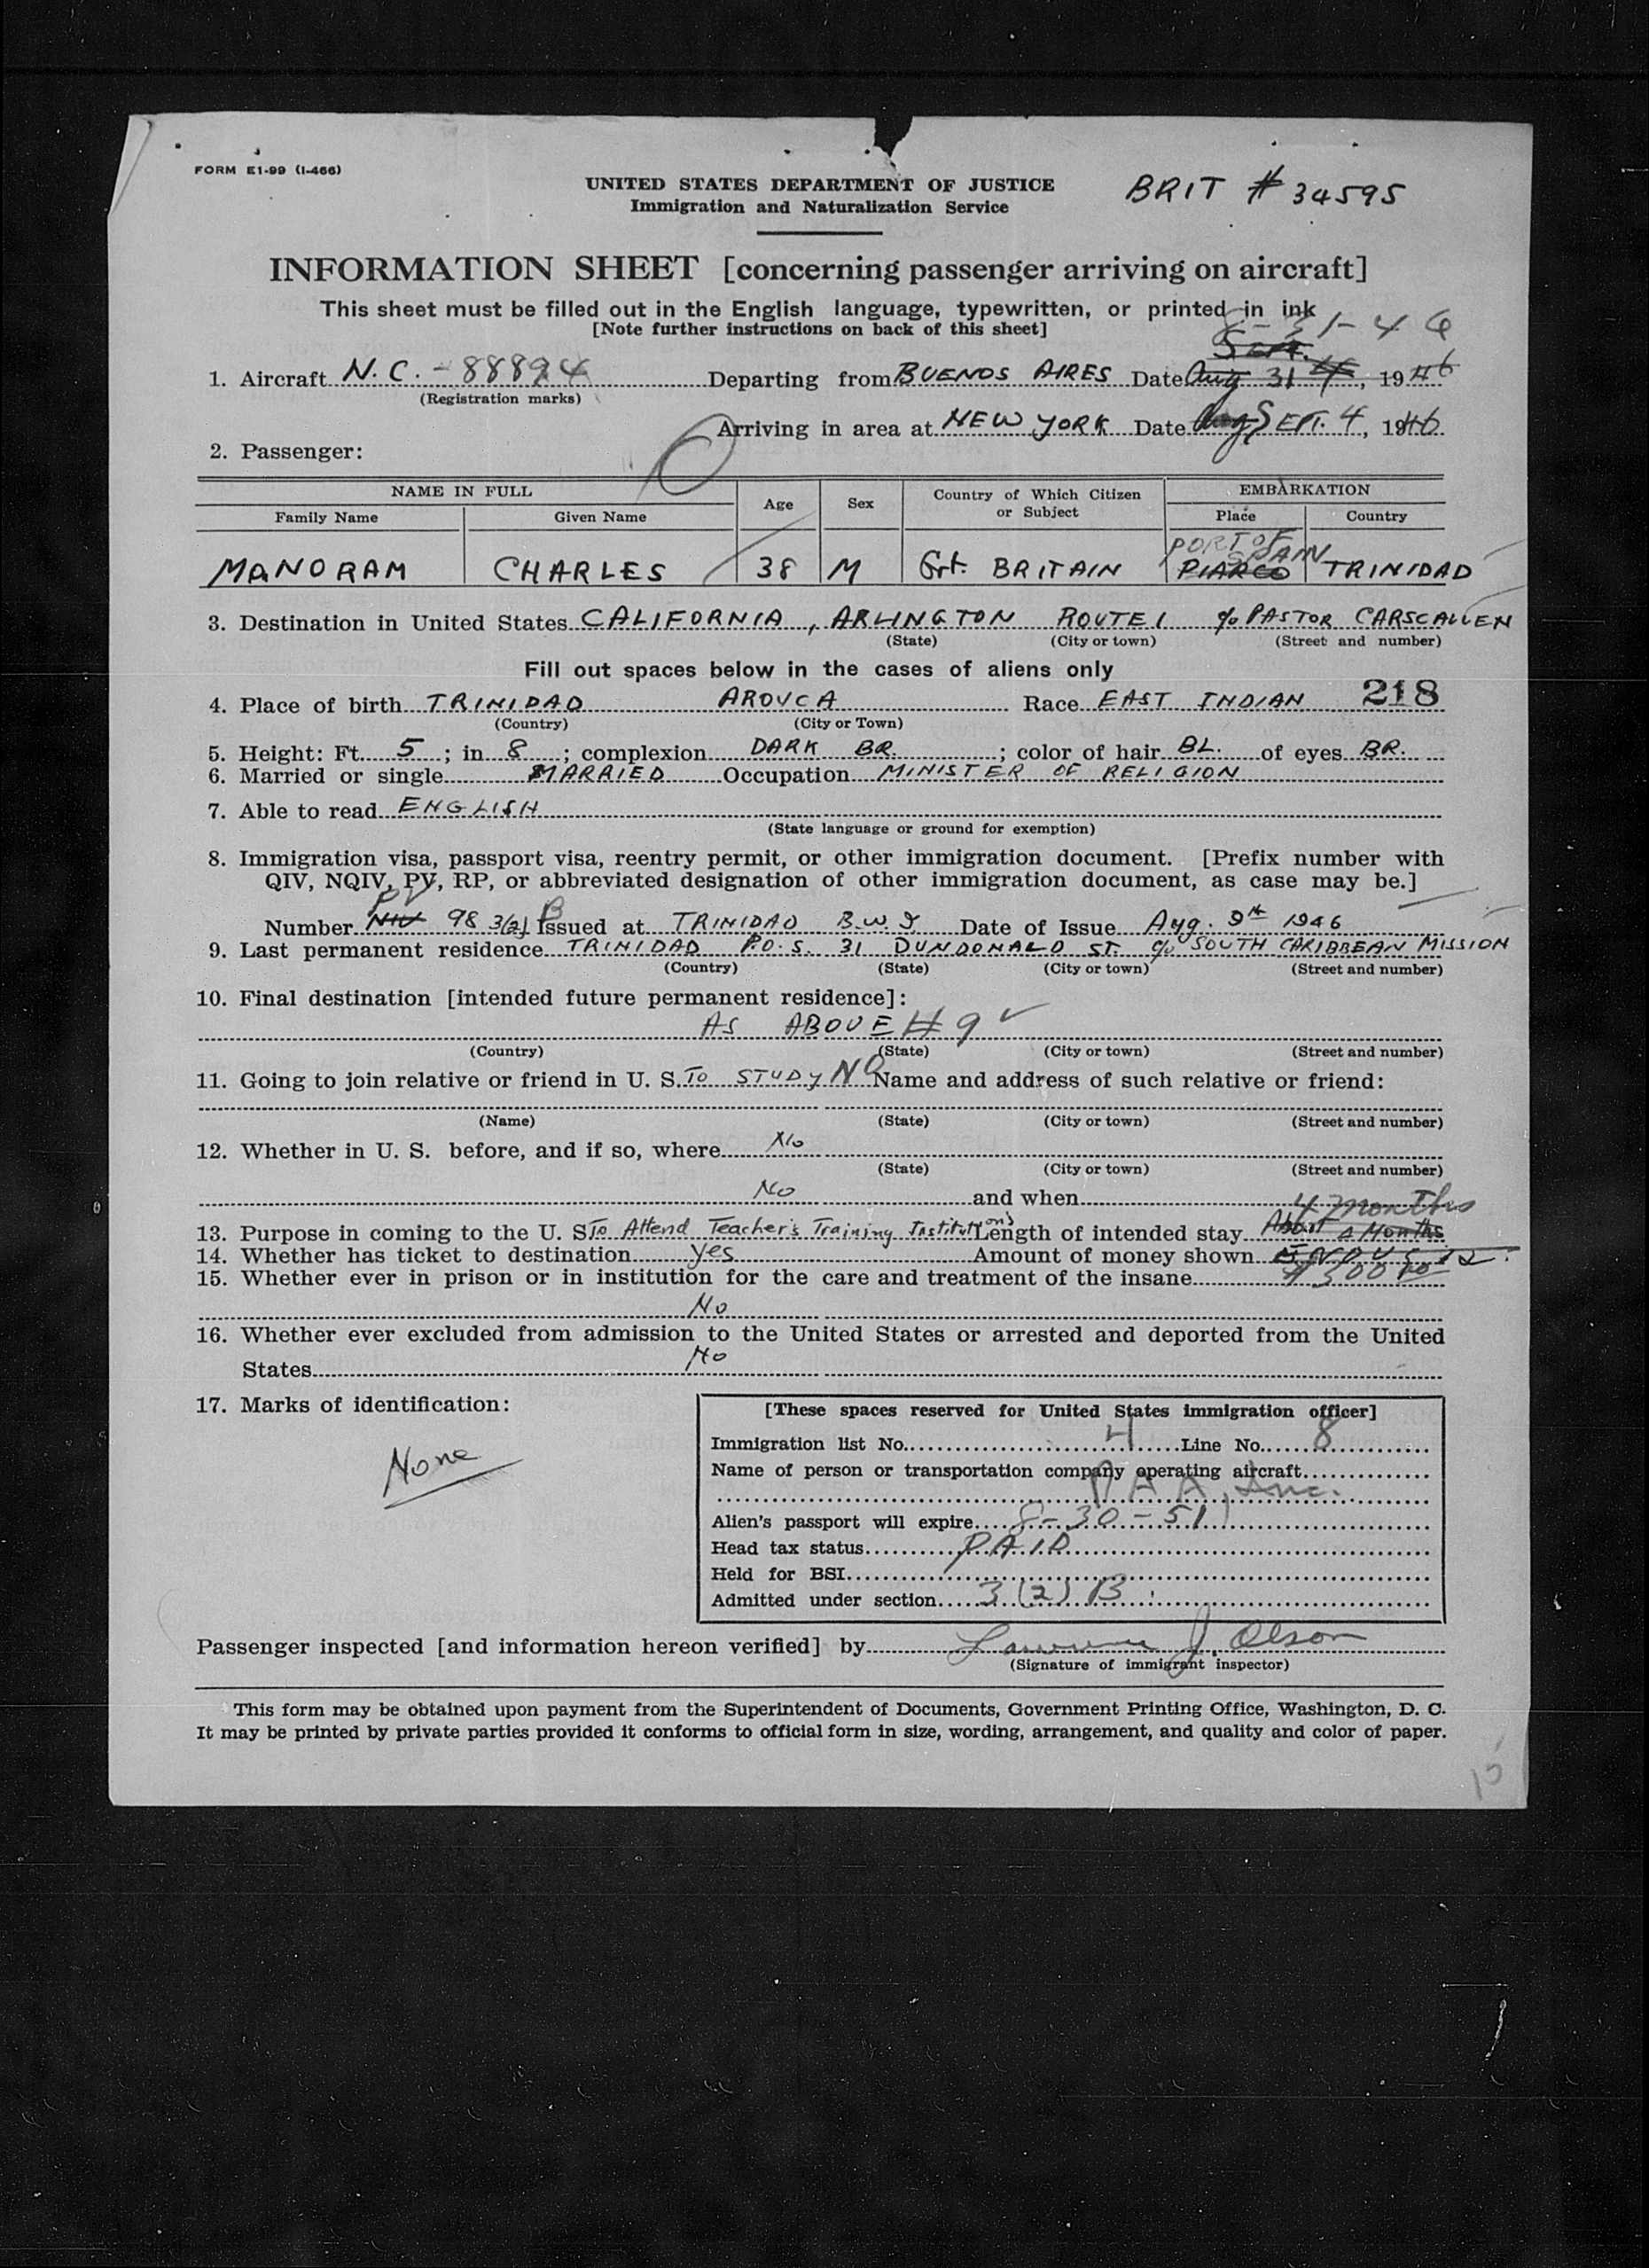 FORM E1-99 (I-466)
UNITED STATES DEPARTMENT OF JUSTICE
Immigration and Naturalization Service
BRIT # 34595
INFORMATION SHEET [concerning passenger arriving on aircraft]
This sheet must be filled out in the English language, typewritten, or printed in ink
[Note further instructions on back of this sheet]
8-31-46
Sept.
1. Aircraft N.C. - 88824 Departing from BUENOS AIRES Date Aug 31 4, 1946
(Registration marks)
Arriving in area at NEW YORK Date Aug SEPT. 4, 1946
2. Passenger:
NAME IN FULL Age Sex Country of Which Citizen or Subject EMBARKATION
Family Name Given Name Place Country
PORT OF SPAIN
MANORAM CHARLES 38 M Grt. BRITAIN PIARCO TRINIDAD
3. Destination in United States CALIFORNIA, ARLINGTON ROUTE 1 c/o PASTOR CARSCALLEN
(State) (City or town) (Street and number)
Fill out spaces below in the cases of aliens only
4. Place of birth TRINIDAD AROUCA Race EAST INDIAN 218
(Country) (City or Town)
5. Height: Ft. 5; in 8; complexion DARK BR.; color of hair BL. of eyes BR.
6. Married or single MARRIED Occupation MINISTER OF RELIGION
7. Able to read ENGLISH
(State language or ground for exemption)
8. Immigration visa, passport visa, reentry permit, or other immigration document. [Prefix number with
QIV, NQIV, PV, RP, or abbreviated designation of other immigration document, as case may be.]
PV
Number NIV 98 3(2) B Issued at TRINIDAD B.W.I Date of Issue Aug. 9th 1946
9. Last permanent residence TRINIDAD P.O.S. 31 DUNDONALD ST. c/o SOUTH CARIBBEAN MISSION
(Country) (State) (City or town) (Street and number)
10. Final destination [intended future permanent residence]:
AS ABOVE #9 ✓
(Country) (State) (City or town) (Street and number)
11. Going to join relative or friend in U. S. TO STUDY NO Name and address of such relative or friend:
(Name) (State) (City or town) (Street and number)
12. Whether in U. S. before, and if so, where No
(State) (City or town) (Street and number)
No and when
4 months
13. Purpose in coming to the U. S. To Attend Teacher's Training Institution's Length of intended stay About 4 Months
14. Whether has ticket to destination Yes Amount of money shown
15. Whether ever in prison or in institution for the care and treatment of the insane $300 00
No
16. Whether ever excluded from admission to the United States or arrested and deported from the United
States No
17. Marks of identification:
None
[These spaces reserved for United States immigration officer]
Immigration list No. 4 Line No. 8
Name of person or transportation company operating aircraft
PAA, Inc.
Alien's passport will expire 8-30-51
Head tax status PAID
Held for BSI
Admitted under section 3(2)B
Passenger inspected [and information hereon verified] by Lawrence J. Olson
(Signature of immigrant inspector)
This form may be obtained upon payment from the Superintendent of Documents, Government Printing Office, Washington, D. C.
It may be printed by private parties provided it conforms to official form in size, wording, arrangement, and quality and color of paper.